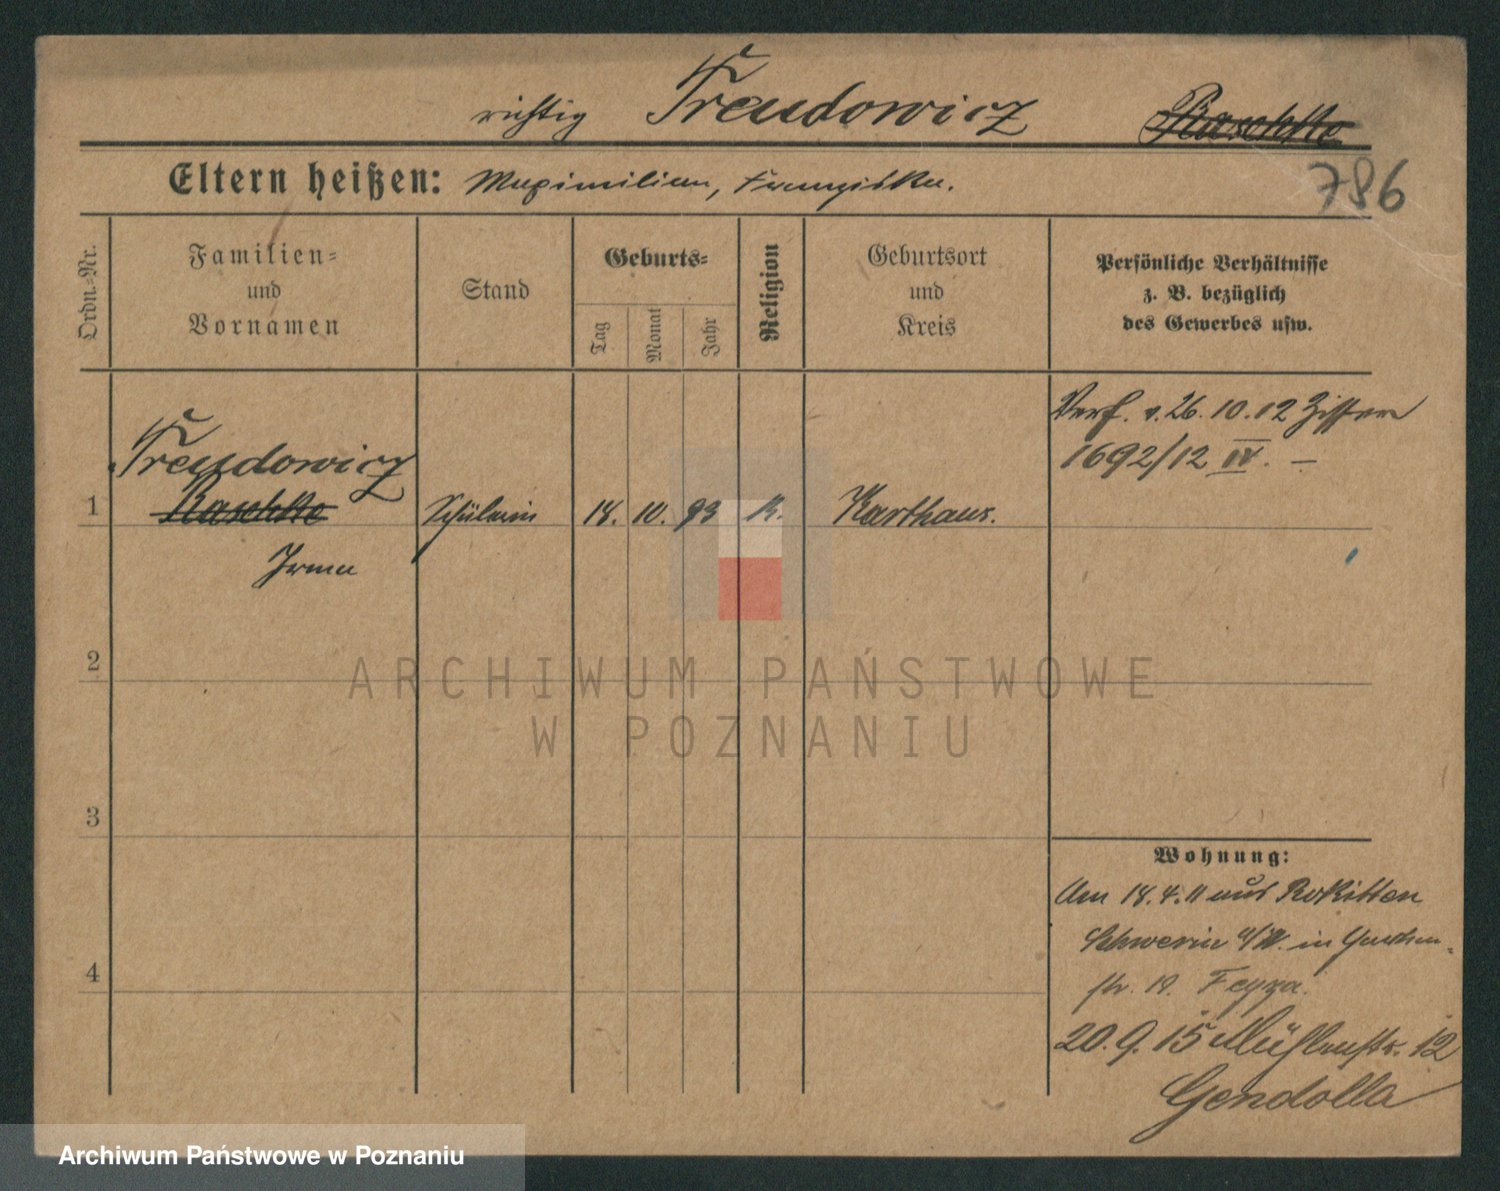 richtig Treudowicz Raschke
786
Eltern heißen: Maximilian, Franziska.
Ordn.-Nr.
Familien-
und
Vornamen
Stand
Geburts-
Tag
Monat
Jahr
Religion
Geburtsort
und
Kreis
Persönliche Verhältnisse
z. B. bezüglich
des Gewerbes usw.
Verf. v. 26. 10. 12 Ziffer
1692/12 IV. —
Treudowicz
1 Raschke Schülerin 18. 10. 93 K. Karthaus.
Irma
2
3
4
Wohnung:
Am 18.4.11 aus Rokitten
Schwerin a/W. in
str. 19.
20.9.15 Mühlenstr. 12
Gendolla
ARCHIWUM PAŃSTWOWE
W POZNANIU
Archiwum Państwowe w Poznaniu